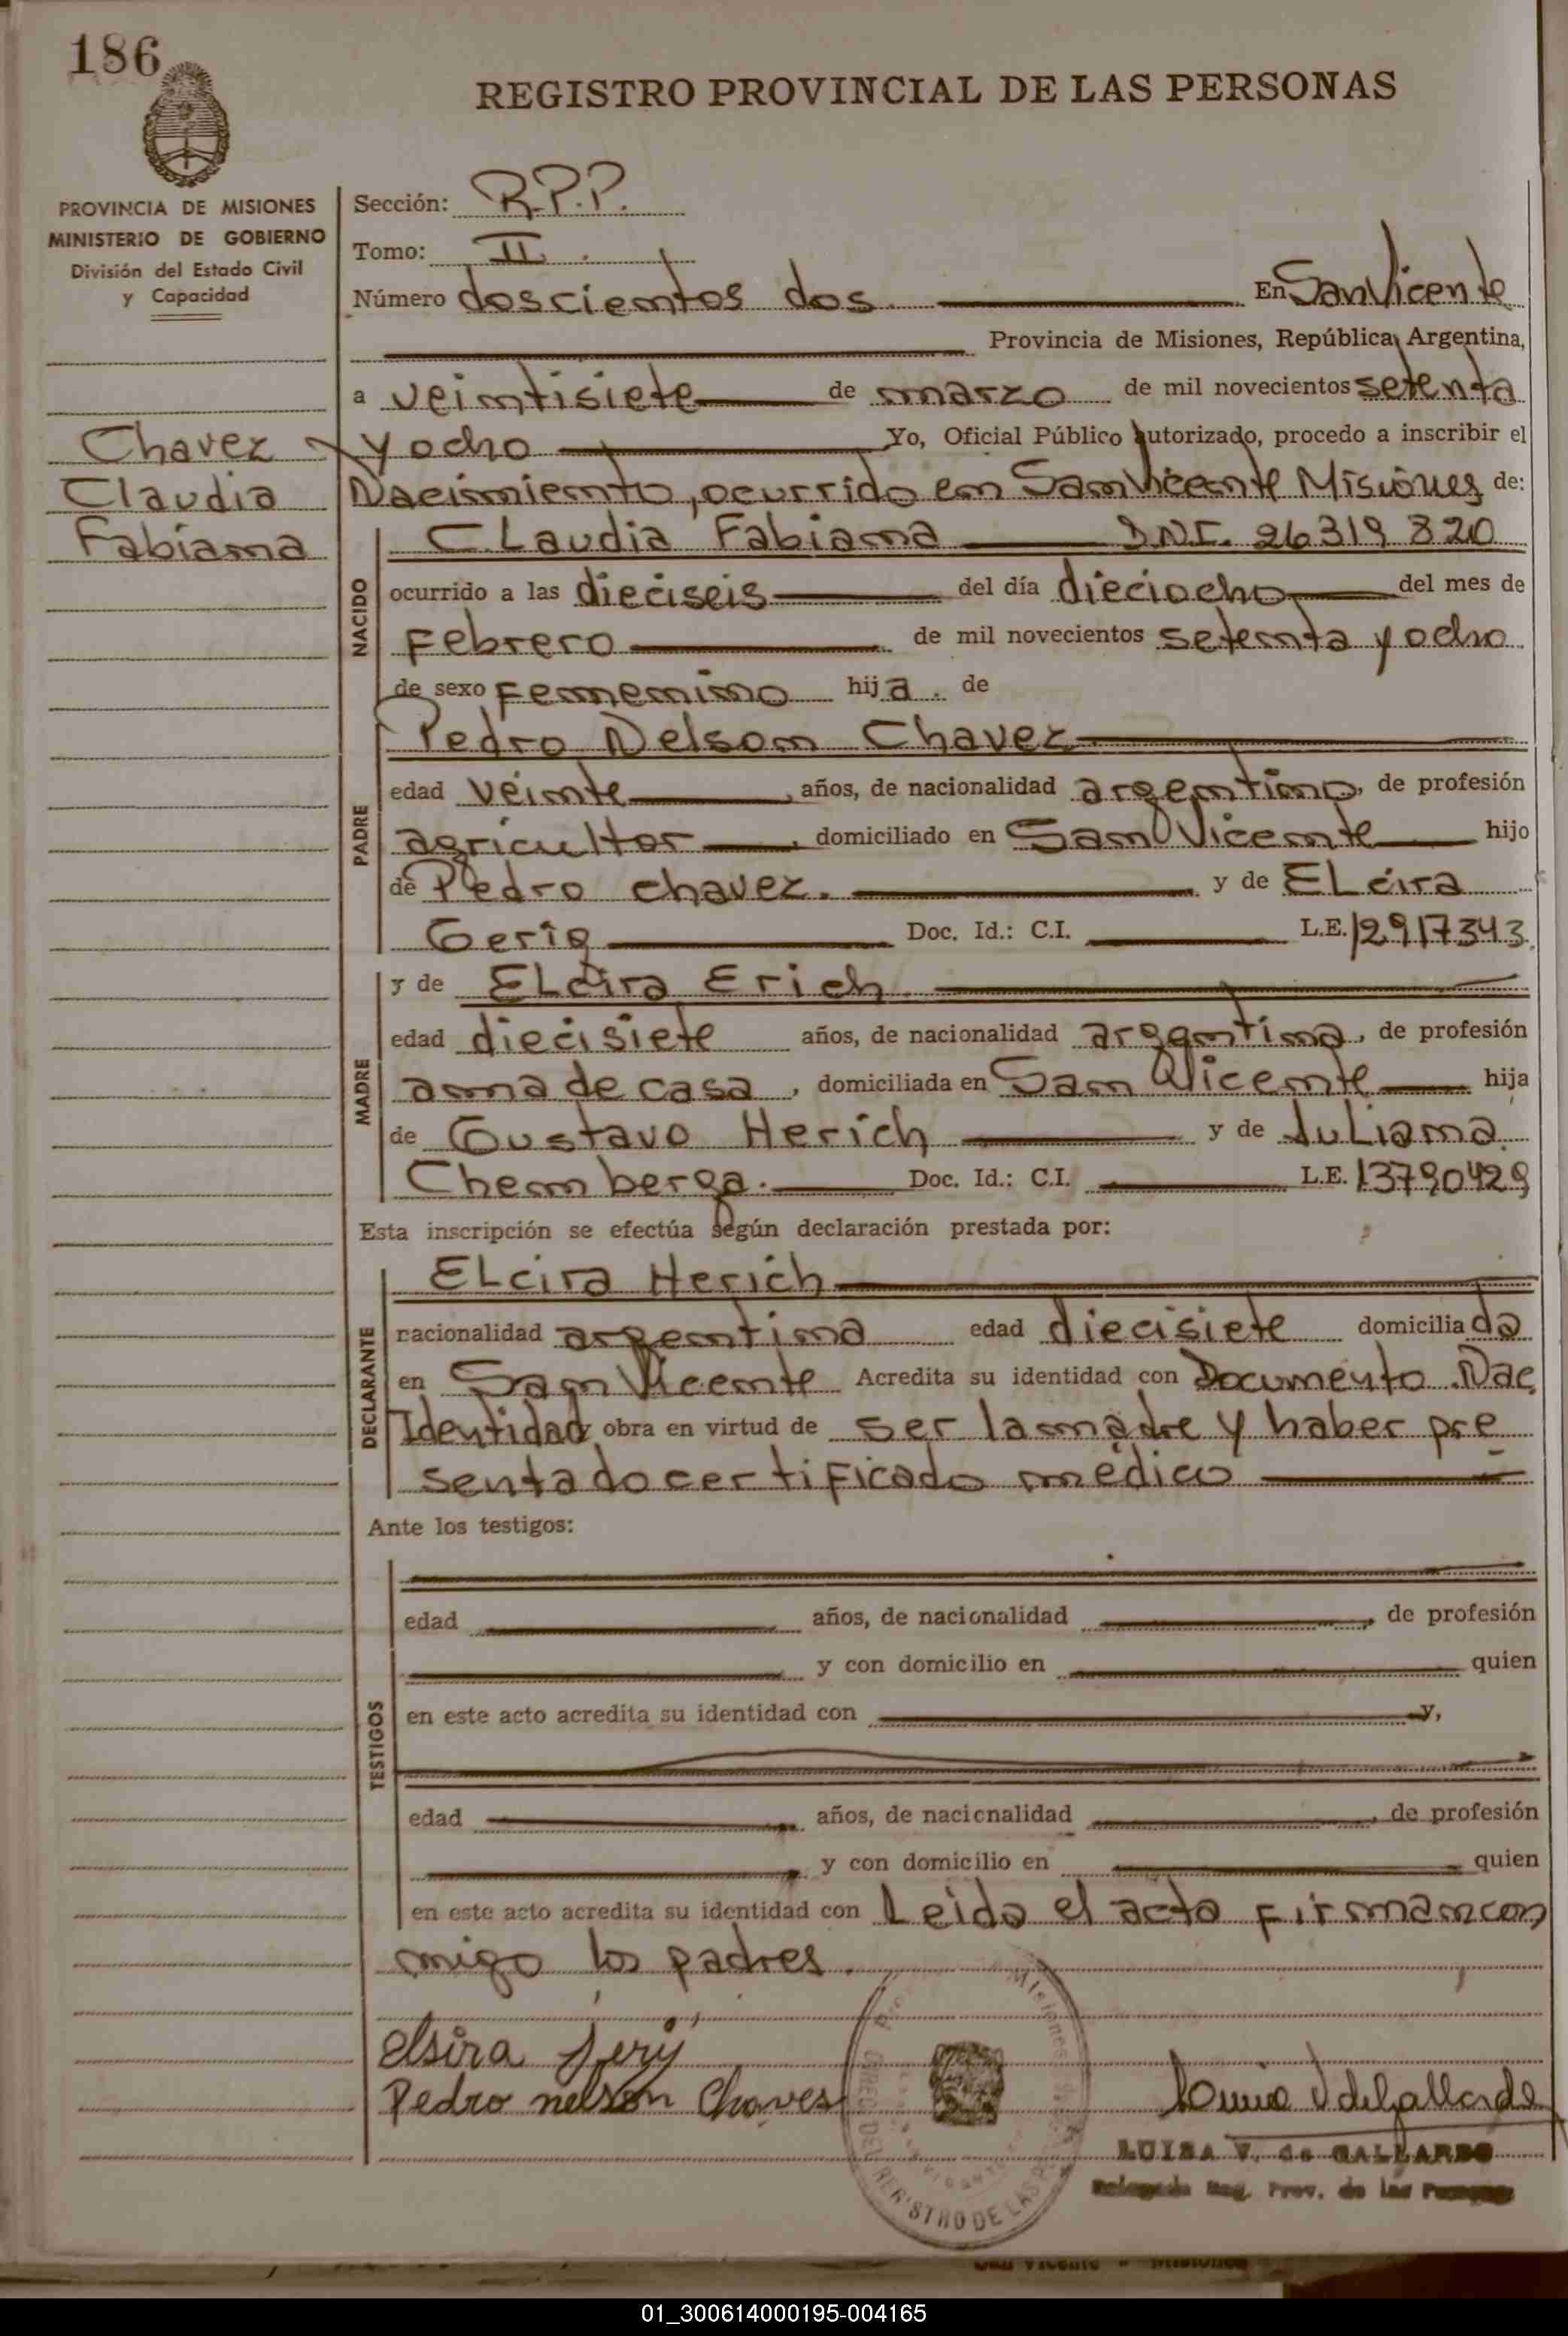 186
REGISTRO PROVINCIAL DE LAS PERSONAS
PROVINCIA DE MISIONES
MINISTERIO DE GOBIERNO
División del Estado Civil
y Capacidad
Sección: R.P.P.
Tomo: II.
Número doscientos dos. En San Vicente
Provincia de Misiones, República Argentina,
a veintisiete de marzo de mil novecientos setenta
Chavez
Claudia
Fabiana
y ocho Yo, Oficial Público autorizado, procedo a inscribir el
Nacimiento, ocurrido en San Vicente Misiones de:
NACIDO
Claudia Fabiana D.N.I. 26319820
ocurrido a las dieciseis del día dieciocho del mes de
Febrero de mil novecientos setenta y ocho
de sexo Femenino hija. de
PADRE
Pedro Nelson Chavez
edad veinte, años, de nacionalidad argentino, de profesión
agricultor, domiciliado en San Vicente hijo
de Pedro chavez. y de ELcira
Gerig Doc. Id.: C.I. L.E. 12917343
MADRE
y de ELcira Erich
edad diecisiete años, de nacionalidad argentina, de profesión
ama de casa, domiciliada en San Vicente hija
de Gustavo Herich y de Juliana
Chemberga. Doc. Id.: C.I. L.E. 13790429
Esta inscripción se efectúa según declaración prestada por:
DECLARANTE
ELcira Herich
nacionalidad argentina edad diecisiete domiciliada
en San Vicente Acredita su identidad con Documento Nac
Identidad obra en virtud de ser la madre y haber pre
sentado certificado médico
Ante los testigos:
TESTIGOS
edad años, de nacionalidad, de profesión
y con domicilio en quien
en este acto acredita su identidad con y,
edad años, de nacionalidad, de profesión
y con domicilio en quien
en este acto acredita su identidad con Leida el acta Firman con
migo los padres.
elsira Jerij
Pedro nelson Chaves
LUISA V. de GALLARDO
Delegada Reg. Prov. de las Personas
REGISTRO DE LAS
Misiones
San Vicente - Misiones
01_300614000195-004165